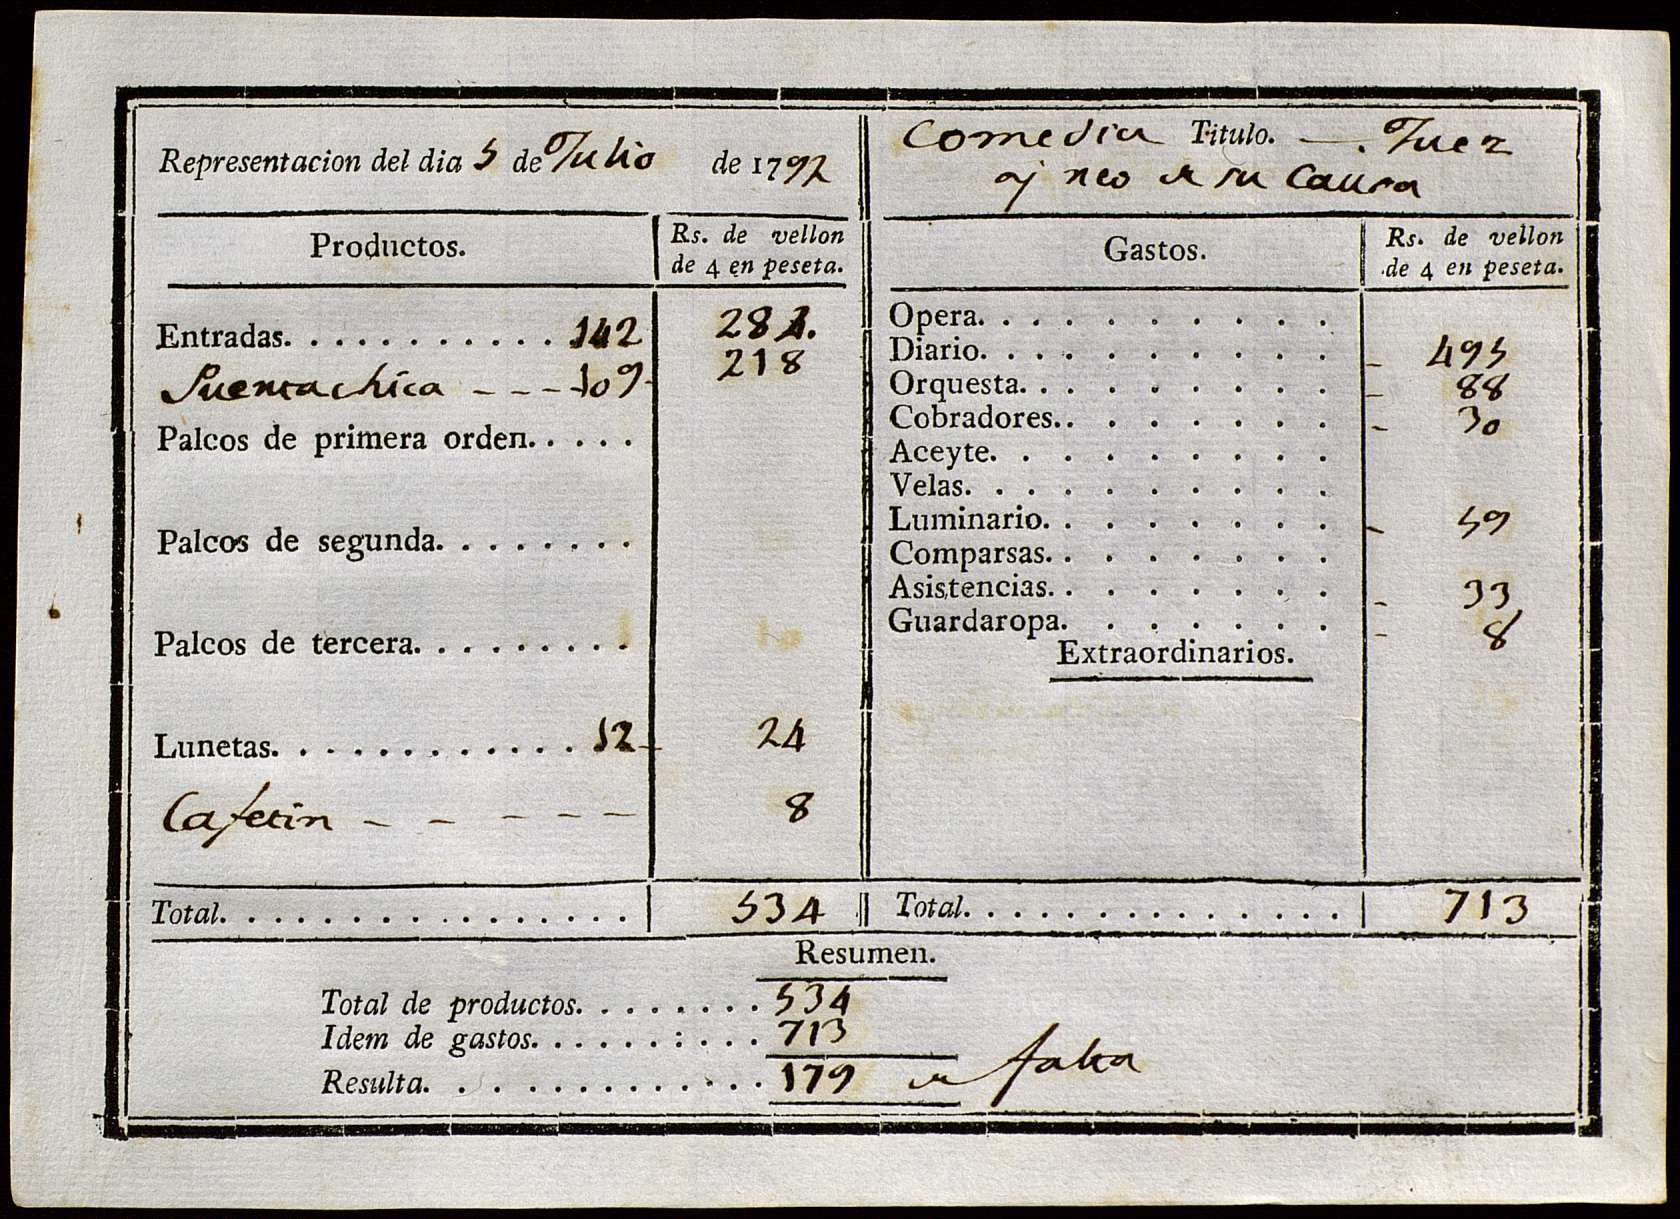 Representacion del dia 5 de Julio de 1792
Comedia Titulo. — . Juez
y reo de su Causa
Productos.
Rs. de vellon
de 4 en peseta.
Entradas. . . . . . . . . . . . 142 284.
Puerta chica - - - 109 - 218
Palcos de primera orden. . . . .
Palcos de segunda. . . . . . . .
Palcos de tercera. . . . . . . . .
Lunetas. . . . . . . . . . . . . 12 - 24
Cafetin - - - - - - 8
Total. . . . . . . . . . . . . . . . 534
Gastos.
Rs. de vellon
de 4 en peseta.
Opera. . . . . . . . . . .
Diario. . . . . . . . . . . - 495
Orquesta. . . . . . . . . . - 88
Cobradores. . . . . . . . . - 30
Aceyte. . . . . . . . . .
Velas. . . . . . . . . . .
Luminario. . . . . . . . . - 59
Comparsas. . . . . . . .
Asistencias. . . . . . . . - 33
Guardaropa. . . . . . . - 8
Extraordinarios.
Total. . . . . . . . . . . . . . . 713
Resumen.
Total de productos. . . . . . . . 534
Idem de gastos. . . . . . : . . . 713
Resulta. . . . . . . . . . . . . 179 de falta